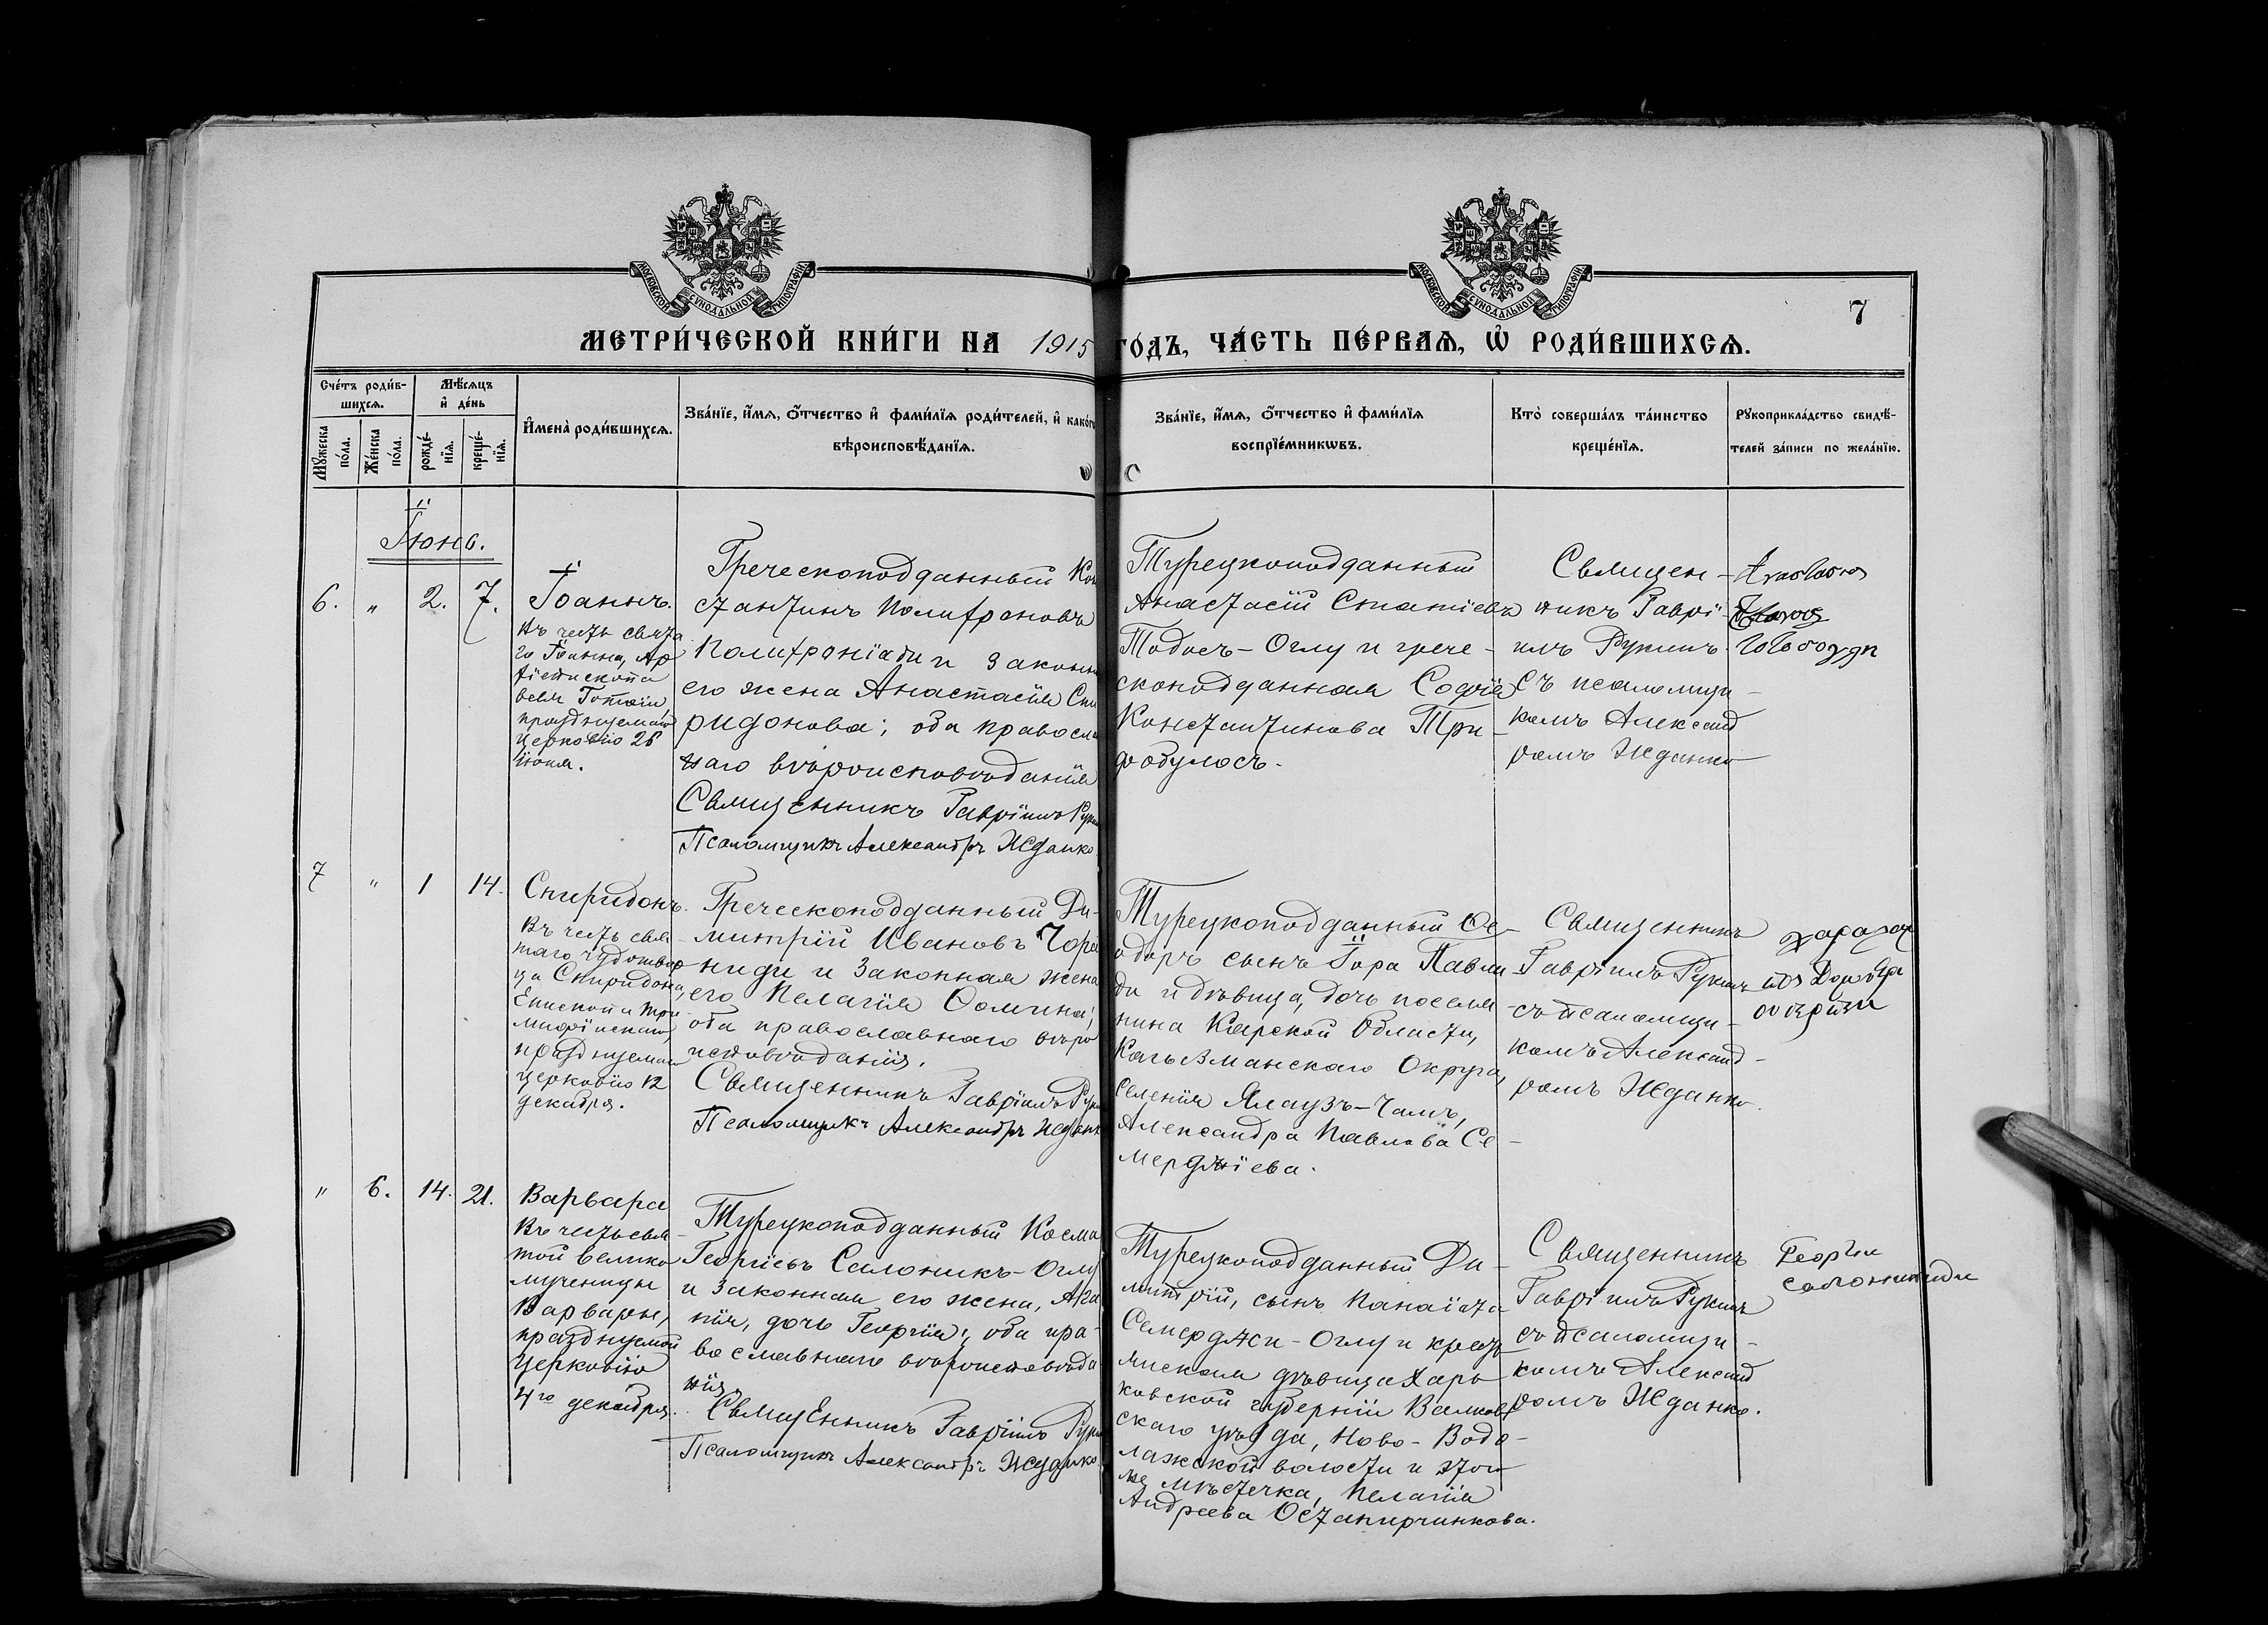 МОСКОВСКОЙ СѴНОДАЛЬНОЙ ТИПОГРАФІИ
МОСКОВСКОЙ СѴНОДАЛЬНОЙ ТИПОГРАФІИ
7
МЕТРИ́ЧЕСКОЙ КНИ́ГИ НА 1915 ГО́ДЪ, ЧА́СТЬ ПЕ́РВАѦ, Ѡ҆ РОДИ́ВШИХСѦ.
Сче́тъ роди́в-
шихсѧ.
Мѣ́сѧцъ
и҆ де́нь
Мꙋ́жеска
по́ла.
Же́нска
по́ла.
рожде́-
нїѧ.
креще́-
нїѧ.
И҆мена̀ роди́вшихсѧ.
Зва́нїе, и҆́мѧ, ѻ҆́тчество и҆ фами́лїѧ роди́телей, и҆ како́гѡ
вѣроисповѣ́данїѧ.
Зва́нїе, и҆́мѧ, ѻ҆́тчество и҆ фами́лїѧ
воспрїе́мникѡвъ.
Кто̀ соверша́лъ та́инство
креще́нїѧ.
Рꙋкоприкла́дство свидѣ́-
телей за́писи по жела́нїю.
Іюнь.
6.
"
2.
7.
Іоаннъ.
Въ честь свята
го Іоанна, Ар
хіепископа
Готѳіи,
празднуемаго
церковію 26
іюня.
Греческоподданный Кон
стантинъ Полихроновъ
Полихроніади и законн
его жена Анастасія Спи
ридонова; оба правосла
наго вѣроисповѣданія
Священникъ Гавріилъ Рук
Псаломщикъ Александръ Жданко
Турецкоподданный
Анастасій Статіевъ
Тодосъ-Оглу и грече-
скоподданная Софія
Константинова Три-
фобулосъ.
Священ-
никъ Гаврі-
илъ Рукинъ
съ псаломщи-
комъ Александ
ромъ Жданко
7
"
1
14.
Спиридонъ.
Въ честь свя-
таго чудотвор
ца Спиридона,
Епископа Три
миѳійскаго,
празднуемаго
церковію 12
декабря.
Греческоподданный Ди-
митрій Ивановъ Чора
ниди и законная жена
его Пелагія Ѳомина;
оба православнаго вѣро
исповѣданія.
Священникъ Гавріилъ Рук
Псаломщикъ Александръ Жданк
Турецкоподданный Ѳе-
одоръ сынъ Іора Павли
ди и дѣвица, дочь поселя
нина Карской Области,
Кагызманскаго Округа,
селенія Ялаузъ-Чамъ,
Александра Павлова Се-
мерджіева.
Священникъ
Гавріилъ Рукинъ
съ псаломщи-
комъ Александ-
ромъ Жданко.
"
6.
14.
21.
Варвара
Въ честь свя
той велико
мученицы
Варвары,
празднуемой
Церковію
4го декабря.
Турецкоподданный Косма
Георгіевъ Салоникъ-Оглу
и законная его жена, Ага
пія, дочь Георгія; оба пра-
вославнаго вѣроисповѣда
нія.
Священникъ Гавріилъ Рук
Псаломщикъ Александръ Жданко
Турецкоподданный Ди-
митрій, сынъ Панаіота
Семерджи-Оглу и кресть
янская дѣвица Харь
ковской губерніи Валков
скаго уѣзда, Ново-Водо-
лажской волости и этого
же мѣстечка, Пелагія
Андреева
Священникъ
Гавріилъ Рукинъ
съ псаломщи-
комъ Александ
ромъ Жданко.
Георгіи